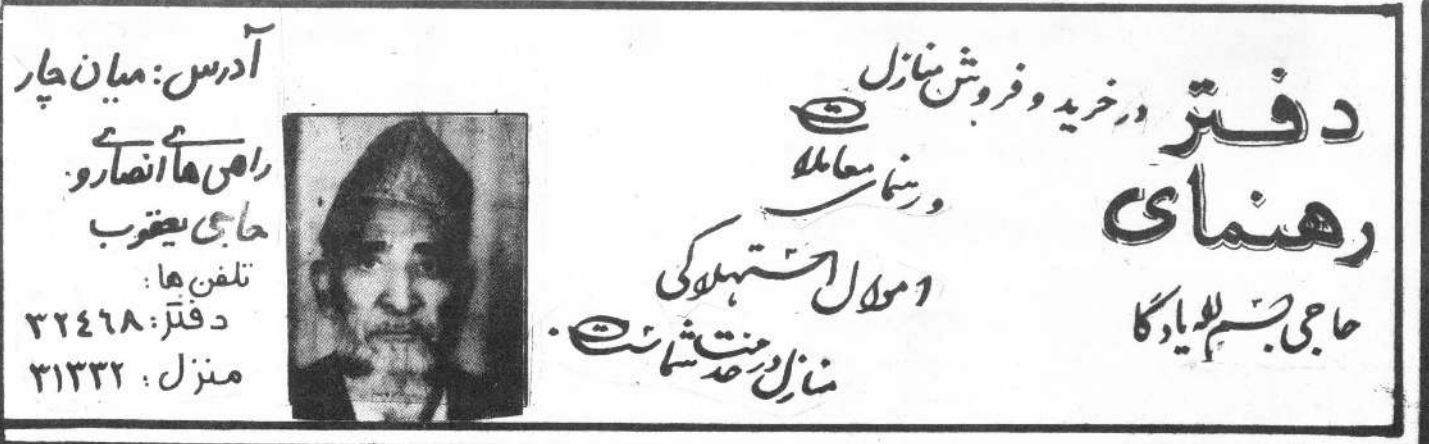 دفتر
رهنمای
حاجی بسم الله یادگا
در خرید و فروش منازل
و رهنمای معاملات
اموال استهلاکی
منازل در خدمت شماست.
آدرس: میان چار
راهی های انصاری و
حاجی یعقوب
تلفن ها:
دفتر: ۳۲٤٦۸
منزل: ۳۱۳۳۲